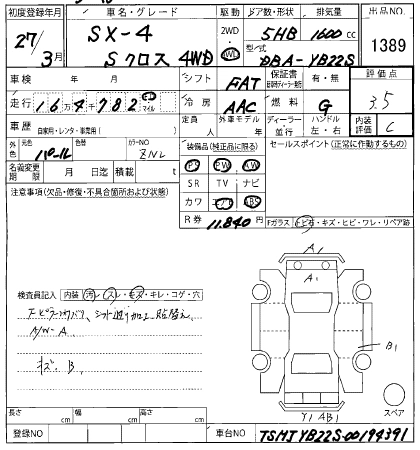 初度登録年月 車名・グレード 駆動 ドア数・形状 排気量 出品NO.
27/3月 SX-4 Sクロス 4WD 2WD 4WD 5HB 1600 cc 1389
型/式 DBA-YB22S
車検 年 月 シフト FAT 保証書 有・無 評価点 3.5
走行 164782 km マイル 冷房 AAC 燃料 G 内装評価 C
車歴 自家用・レンタ・事業用( ) 定員 人 外車モデル 年 ディーラー 並行 ハンドル 左・右
外色 元色 パール 色替 カラーNO ZNL
装備品(純正品に限る) セールスポイント(正常に作動するもの)
名義変更期限 月 日迄 積載 t
PS PW AW
SR TV ナビ
カワ エアB ABS
R券 11.840円
注意事項(欠品・修復・不具合箇所および状態)
Fガラス トビ石・キズ・ヒビ・ワレ・リペア跡
A1
A1
B1
Y1 AB1
スペア
検査員記入 内装 汚レ・スレ・キズ・キレ・コゲ・穴
A/W-A
キズ、B.
長さ cm 幅 cm 高さ cm
登録NO 車台NO TSMJYB22S-00194391